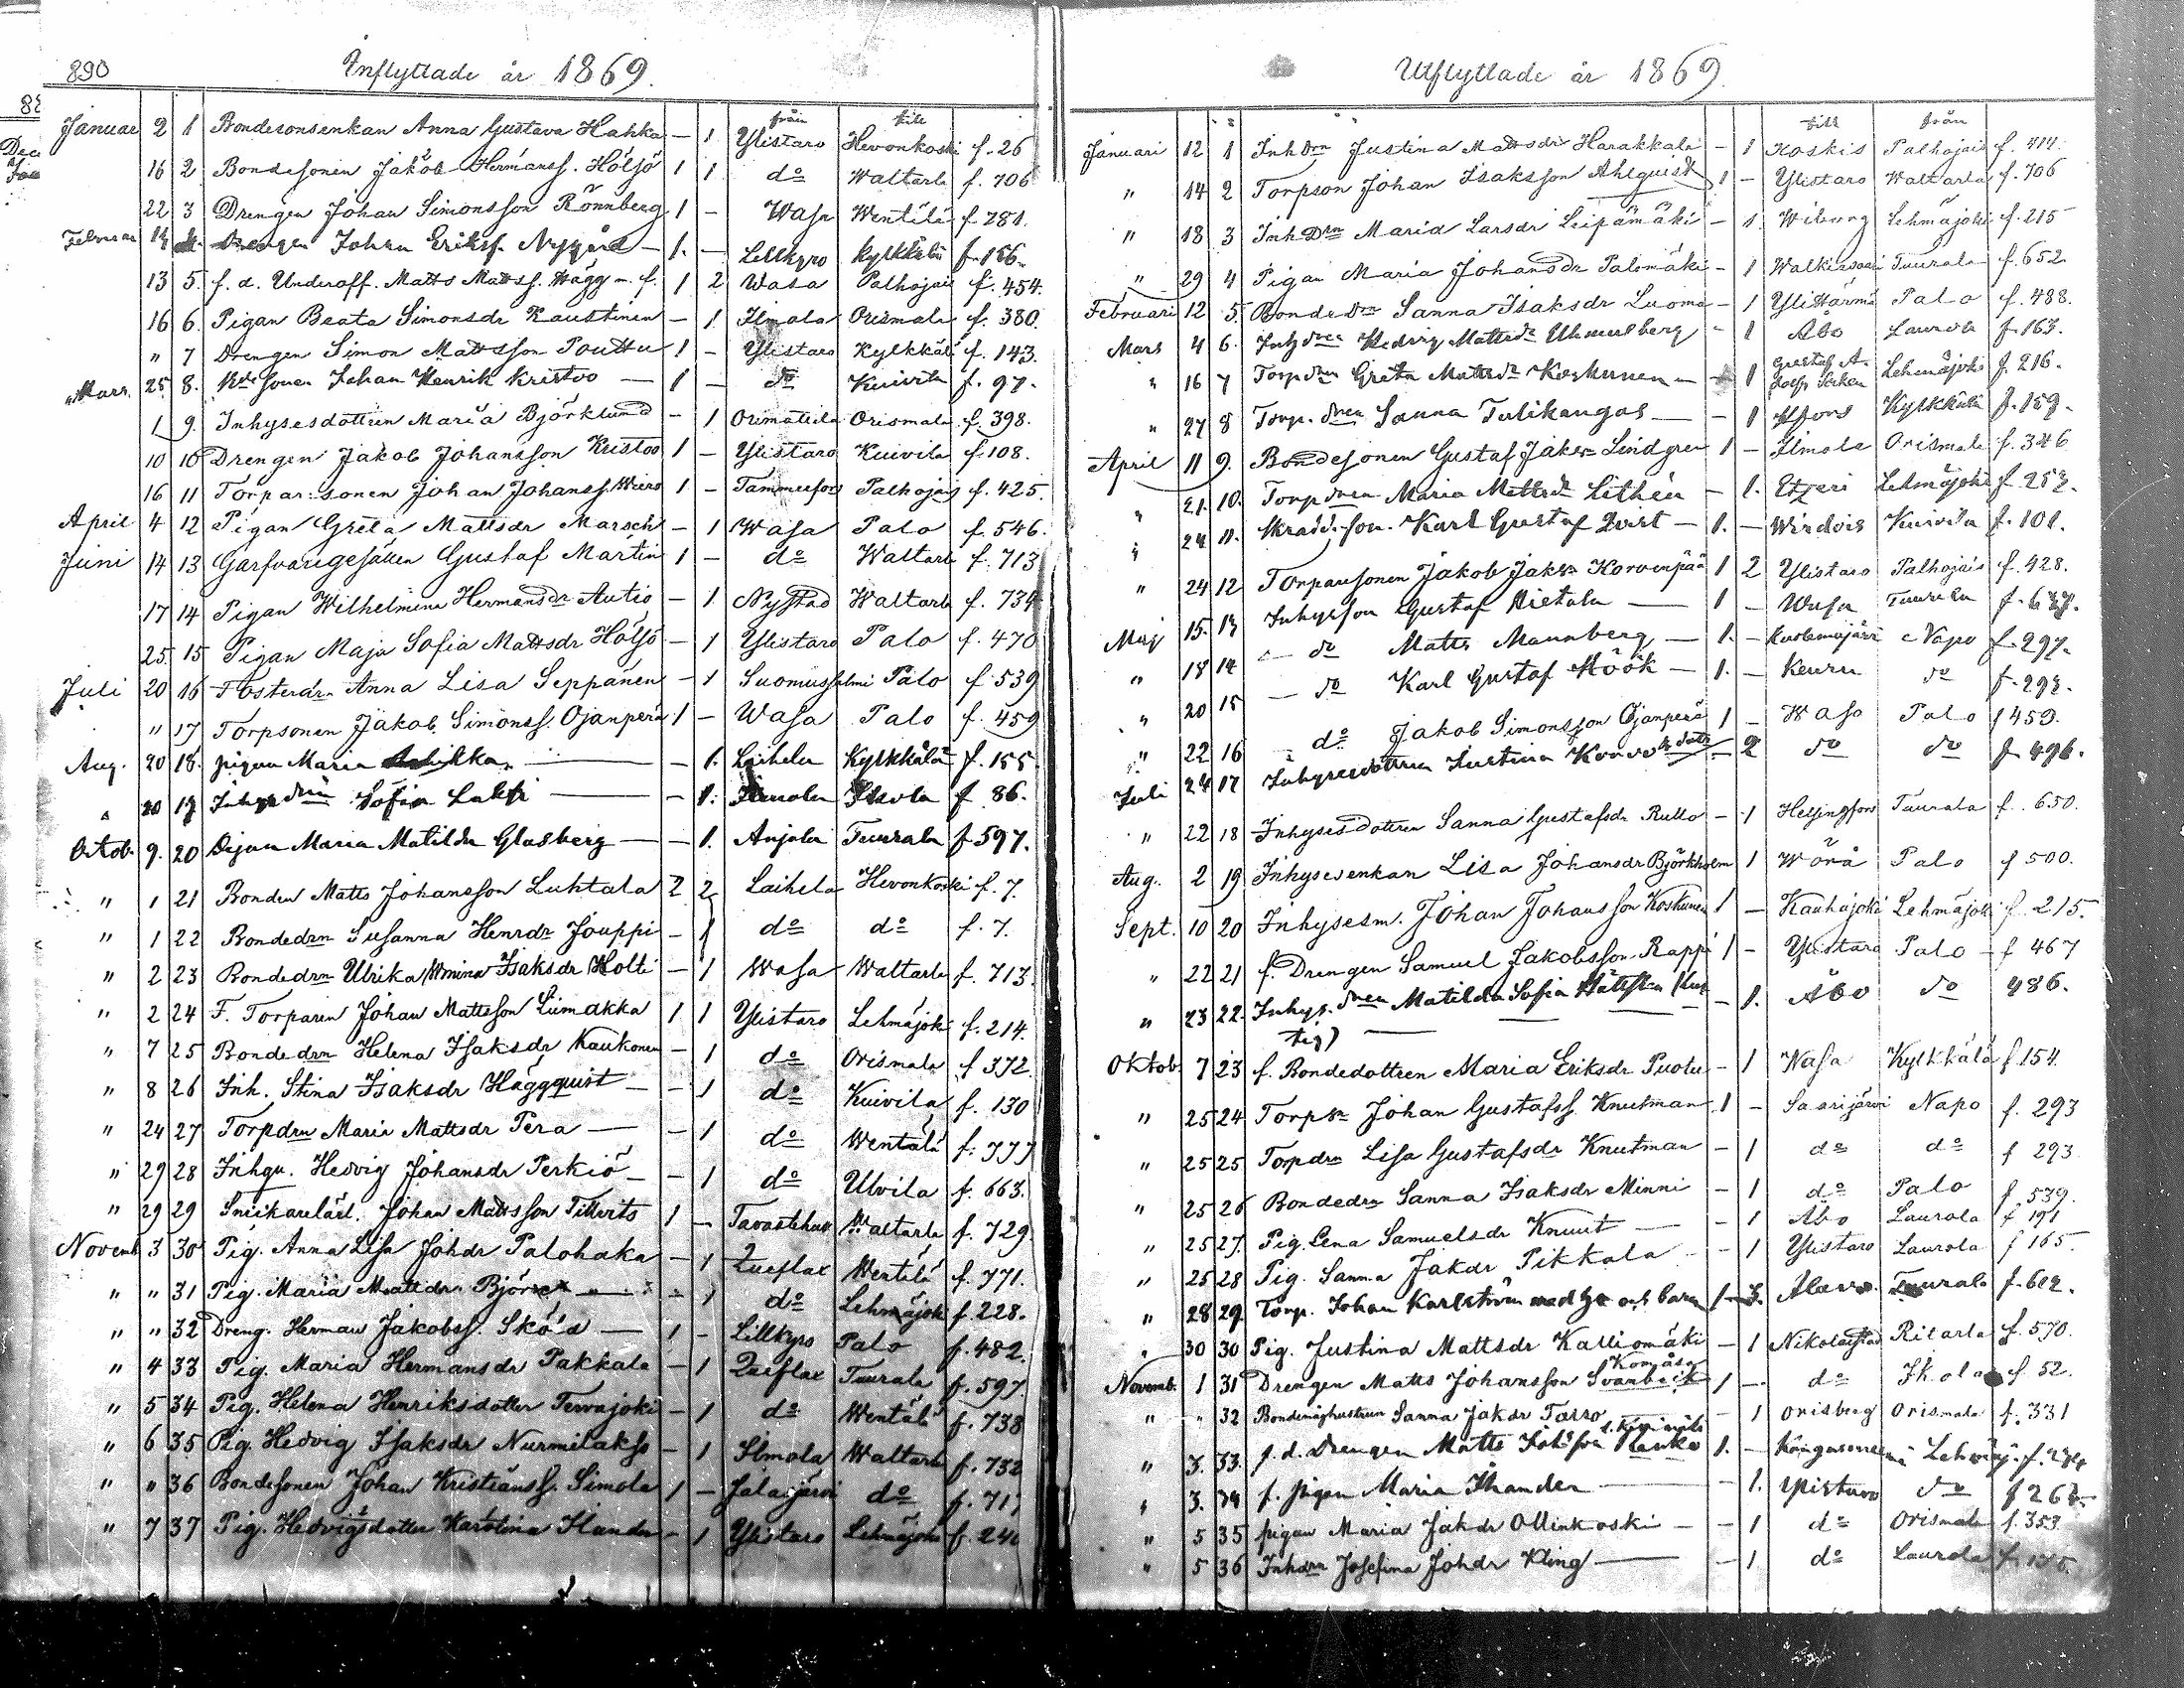 890
Inflyttade år 1869.
från till
Januar 2 1 Bondesonsenkan Anna Gustava Hahka – 1 Ylistaro Hevonkoski f. 26
16 2 Bondesonen Jakob Hermanss. Höljö 1 1 do Waltarla f. 706
22 3 Drengen Johan Simonsson Rönnberg 1 – Wasa Wentälä f. 781.
Februar 14 4. Drengen Johan Erikss. Nygård – 1. – Lillkyro Kylkkälä f. 156.
13 5. f. d. Underoff. Matts Mattss. Hägg – f. 1 2 Wasa Palhojais f. 454.
16 6. Pigan Beata Simonsdr Kaustinen – 1. Ilmola Orismala f. 380.
" 7 Drengen Simon Mattsson Pouttu 1 – Ylistaro Kylkkälä f. 143.
Mars. 25 8. Bdesonen Johan Henrik Kristoo – 1 – do Kuivila f. 97.
1 9. Inhysesdottren Maria Björklund – 1 Orimattila Orismala f. 398.
10 10 Drengen Jakob Johansson Kristoo 1 – Ylistaro Kuivila f. 108.
16 11 Torparesonen Johan Johanss. Wiero 1 – Tammerfors Palhojais f. 425.
April 4 12 Pigan Greta Mattsdr Marsch – 1 Wasa Palo f. 546.
Juni 14 13 Garfvaregesällen Gustaf Martin 1 – do Waltarla f. 713
17 14 Pigan Wilhelmina Hermansdr Autio – 1. Nystad Waltarla f. 734
25. 15 Pigan Maja Sofia Mattsdr Höljö – 1 Ylistaro Palo f. 470
Juli 20 16 Fosterdr. Anna Lisa Seppänen – 1 Suomussalmi Palo f. 539
" 17 Torpsonen Jakob Simonss. Ojanperä 1 – Wasa Palo f. 459
Aug. 20 18. pigan Maria – 1. Laihela Kylkkälä f. 155
" 20 19 Inhys dren Sofia Laksi – 1. Ilmola Ikola f 86.
Octob. 9. 20 Pigan Maria Matilda Glasberg – 1. Anjala Tuurala f 597.
" 1 21 Bonden Matts Johansson Luhtala 2 2 Laihela Hevonkoski f. 7.
" 1 22 Bondedrn Susanna Henrdr Jouppi – 1 do do f. 7.
" 2 23 Bondedrn Ulrika Wmina Isaksdr Holti – 1 Wasa Waltarla f. 713.
" 2 24 F. Torparen Johan Mattsson Liimakka 1 1 Ylistaro Lehmäjoki f. 214.
" 7 25 Bondedrn Helena Isaksdr Kaukonen – 1 do Orismala f 372.
" 8 26 Inh. Stina Isaksdr Häggquist – 1 do Kuivila f. 130
" 24 27 Torpdrn Maria Mattsdr Pera – 1 do Wentälä f. 777
" 29 28 Inhqu. Hedvig Johansdr Perkiö – 1 do Ulvila f. 663.
" 29 29 Snickarelärl. Johan Mattsson Tillvits 1 – Tavastehus Waltarla f. 729
Novemb 3 30 Pig. Anna Lisa Johdr Palohaka – 1 Queflax Wentälä f. 771.
" " 31 Pig. Maria Mattdr. – 1 do Lehmäjoki f. 228.
" " 32 Dreng. Herman Jakobss. Sköld – 1 – Lillkyro Palo f. 482.
" 4 33 Pig. Maria Hermansdr Pakkala – 1 Queflax Tuurala f. 597.
" 5 34 Pig. Helena Henriksdotter Tervajoki – 1 do Wentälä f. 738
" 6 35 Pig. Hedvig Isaksdr Nurmilakso – 1 Ilmola Waltarla f. 732
" " 36 Bondesonen Johan Kristianss. Simola 1 – Jalasjärvi do f. 717
" 7 37 Pig. Hedvigsdotter Karolina Ilander – 1 Ylistaro Lehmäjoki f. 240
Utflyttade år 1869.
till från
Januari 12 1 Inhdrn Justina Mattsdr Harakkala – 1 Koskis Palhojais f. 414.
" 14 2 Torpson Johan Isaksson Ahlquist 1 – Ylistaro Waltarla f. 706
" 18 3 Inhdrn Maria Larsdr Leipämäki – 1. Wiborg Lehmäjoki f. 215
" 29 4 Pigan Maria Johansdr Palomäki – 1 Walkeasaari Tuurala f. 652
Februari 12 5. Bondedrn Sanna Isaksdr Luoma – 1 Ylihärmä Palo f. 488.
Mars 4 6. Inhdren Hedvig Mattsdr – 1 Åbo Laurola f. 163.
" 16 7 Torpdren Greta Mattsdr Koskunen – 1 Gustaf A. Lehmäjoki f. 216.
" 27 8 Torp. dren Sanna Tulikangas – 1 Hfors Kylkkälä f. 159.
April 11 9. Bondesonen Gustaf Jakss. Lindgren 1 – Ilmola Orismala f. 346
" 21. 10. Torpdren Maria Mattsdr Lithén – 1. Etzeri Lehmäjoki f 253.
" 24 11. Skrädd. son. Karl Gustaf Qvist – 1. – Wirdois Kuivila f. 101.
" 24 12 Torparesonen Jakob Jakss. Korvenpää 1 2 Ylistaro Palhojais f. 428.
Maj 15. 13 Inhysson Gustaf Hietala – 1 – Wasa Tuurala
" 18 14 – do Matts Mannberg – 1. – Napo f. 297.
" 20 15 – do Karl Gustaf Höök – 1. – Keuru do f. 293.
" 22 16 do Jakob Simonsson Ojanperä 1 – Wasa Palo f 459.
Juli 24 17 Inhysesdottren Justina – 2 do do f. 496.
" 22 18 Inhysesdottren Sanna Gustafsdr Rullo – 1 Helsingfors Tuurala f. 650.
Aug. 2 19 Inhysesenkan Lisa Johansdr Björkholm 1 Wörå Palo f 500.
Sept. 10 20 Inhysesm. Johan Johansson Koskunen 1 – Kauhajoki Lehmäjoki f. 215.
" 22 21 f. Drengen Samuel Jakobsson Rappi 1 – Ylistaro Palo – f 467
" 23 22. Inhys. dren Matilda Sofia – 1. Åbo do 486.
Oktob. 7 23 f. Bondedottren Maria Eriksdr Puotu – 1 Wasa Kylkkälä f. 154.
" 25 24 Torpsn Johan Gustafss. Knutman 1 – Saarijärvi Napo f. 293
" 25 25 Torpdrn Lisa Gustafsdr Knutman – 1 do do f 293
" 25 26 Bondedrn Sanna Isaksdr Minni – 1 do Palo f. 539.
" 25 27. Pig. Lena Samuelsdr Knuut – 1 Åbo Laurola f 191
" 25 28 Pig. Sanna Jakdr Pikkala – 1 Ylistaro Laurola f 165.
" 28 29. Torp. Johan Karlström med hu och barn 1 – 3. Alavo. Tuurala f. 602.
" 30 30 Pig. Justina Mattsdr Kalliomäki – 1 Nikolaistad Ritarla f. 570.
Novemb. 1 31 Drengen Matts Johansson Svanbäck 1 – do Ikola f. 52.
" " 32 Bondemåghustrun Sanna Jakdr Tarro – 1 Orisberg Orismala f. 331
" 3. 33. f. d. Drengen Matts 1. – Lehmäj.
" 3. 34 f. pigan Maria Ihander – 1. Ylistaro do f 267.
" 5 35 pigan Maria Jakdr Ollinkoski – 1 do Orismala f. 353.
" 5 36 Inhdrn Josefina Johdr Kling – 1. do Laurola